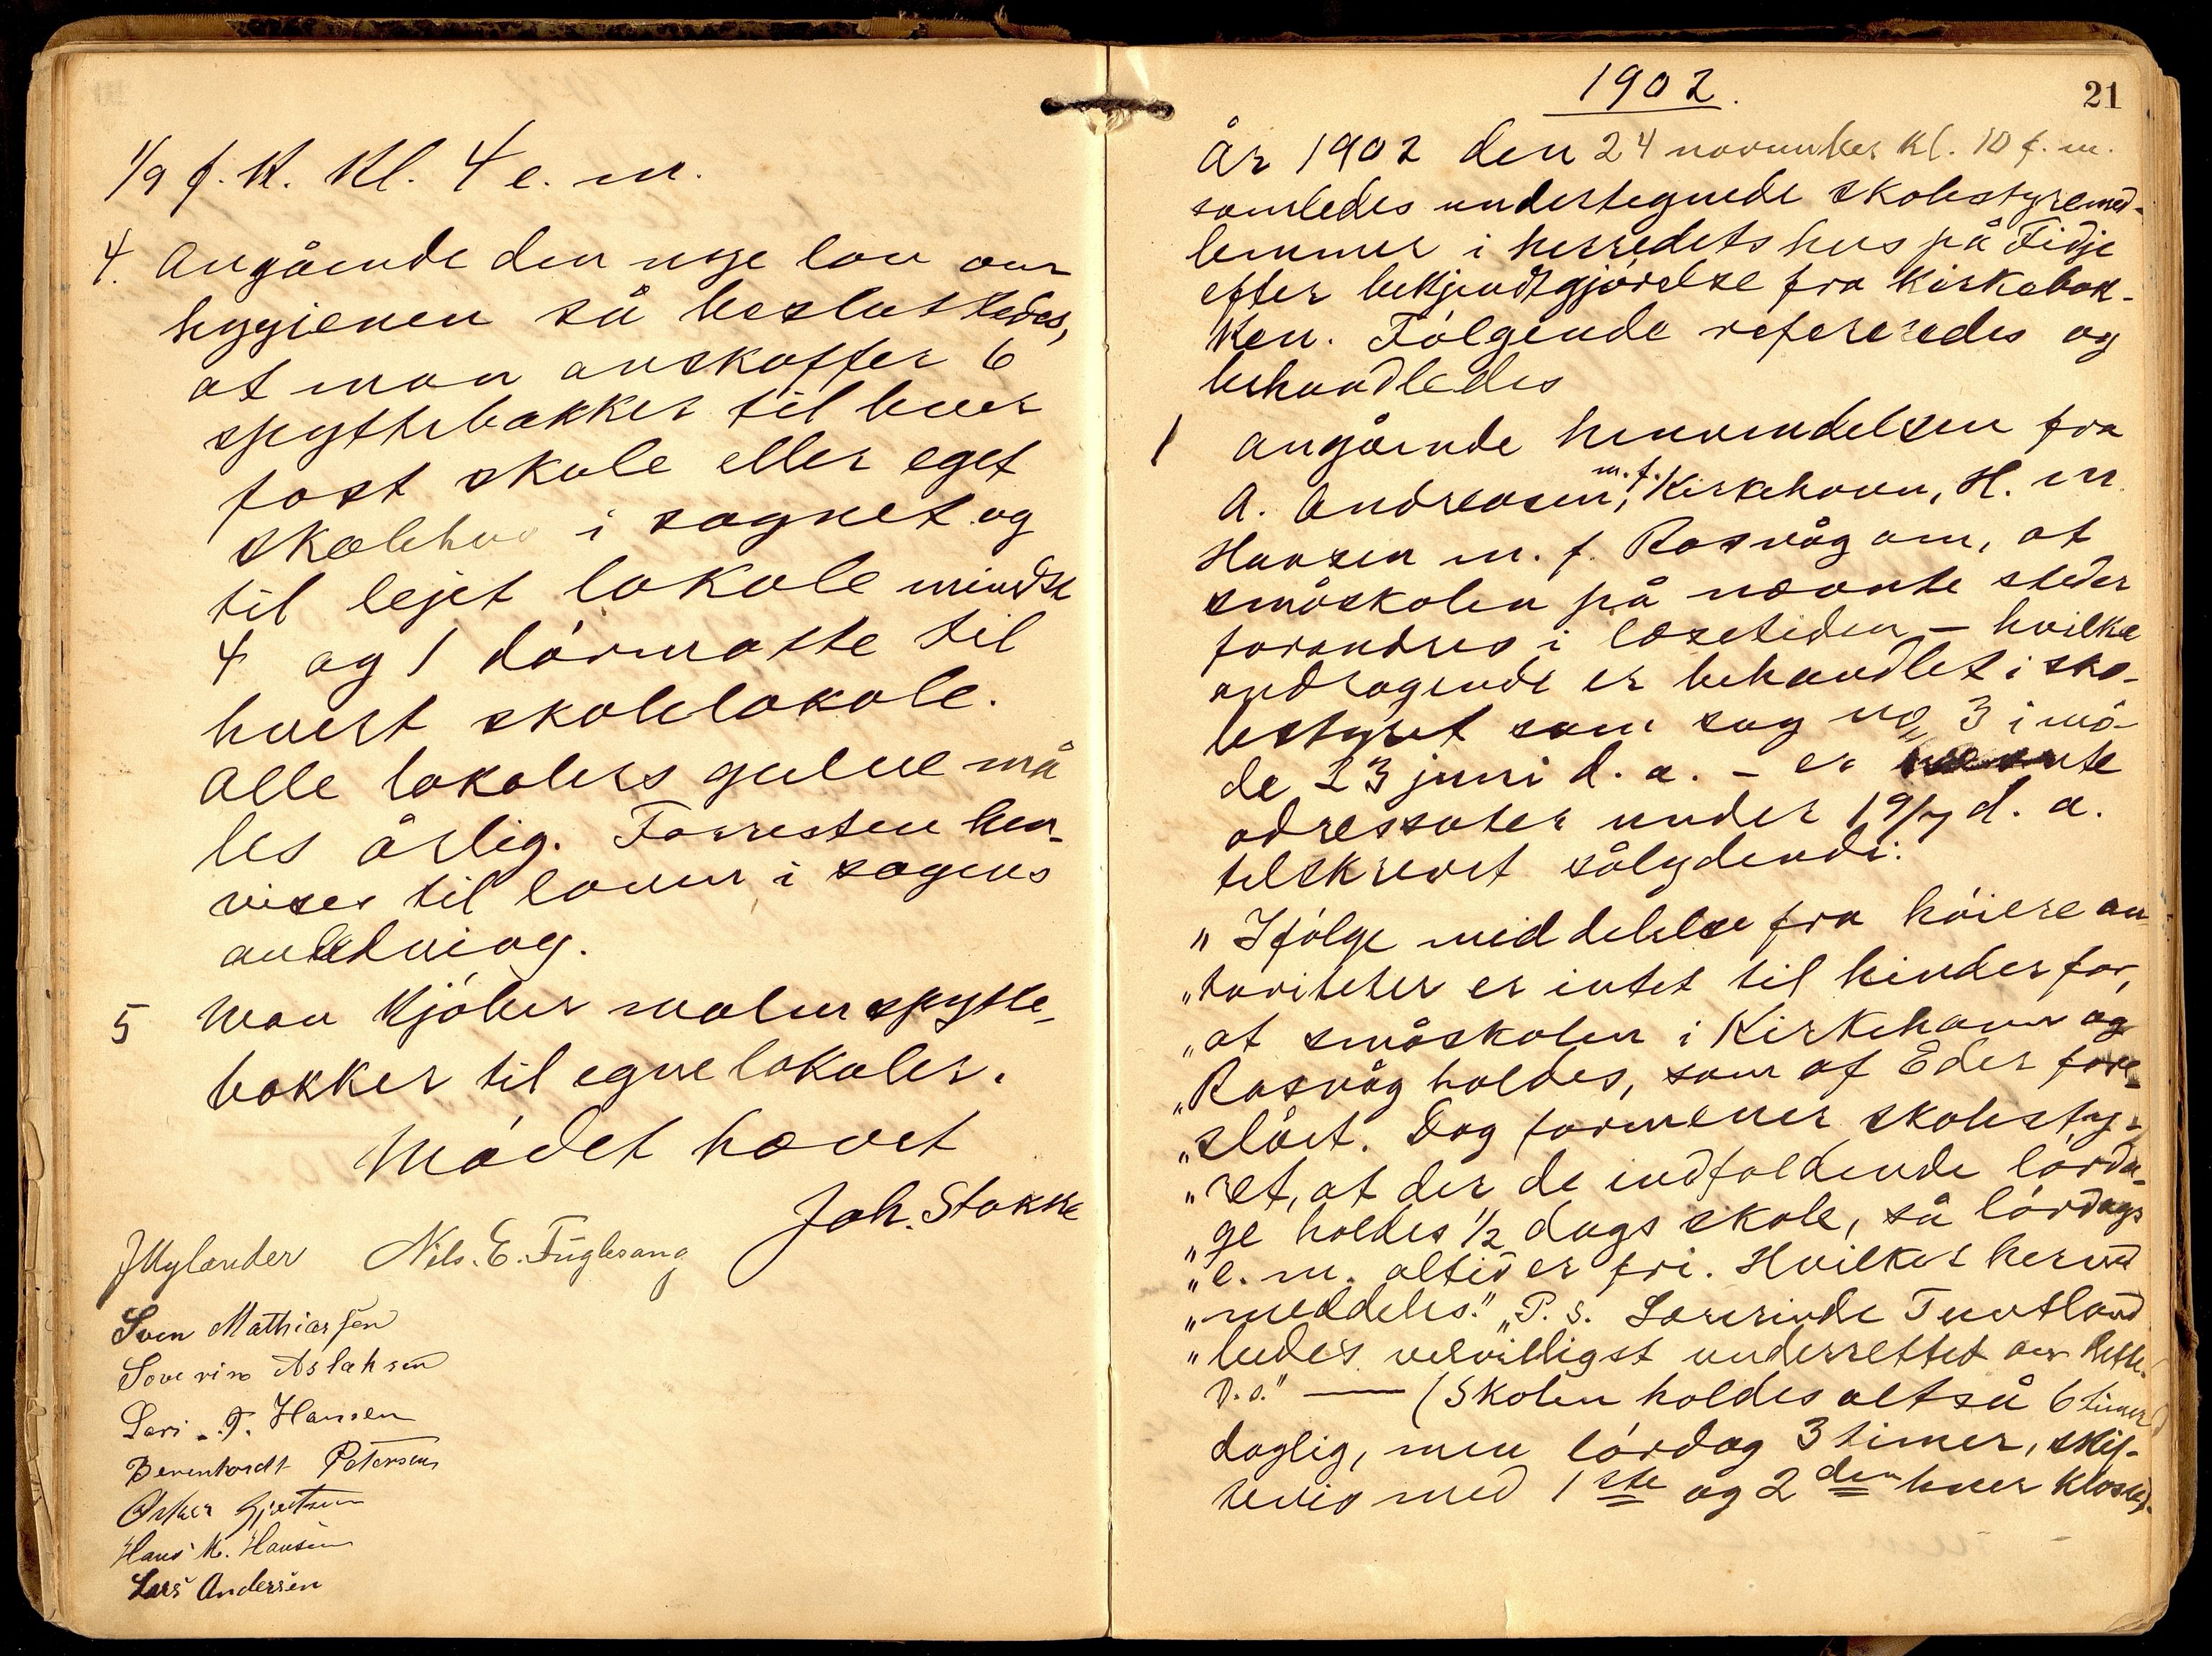 1/9 f. K. Kl. 4 e. m.
4. Angående den nye lov om
hygienen så besluttedes,
at man anskaffer 6
spyttebakker til hver
fast skole eller eget
skolehus i sognet og
til lejet lokale mindst
4 og 1 dørmatte til
hvert skolelokale.
Alle lokalers gulve må
les årlig. Forresten hen-
vises til loven i sagens
anledning.
5 Man kjøber malm spytte-
bakker til egne lokaler.
Mødet hævet
Joh. Stakke
J Mylander Nils. E. Fuglesang
Sven Mathiassen
Soverin Aslaksen
Lars. T. Hansen
Berenhardt Petersen
Oskar Gjertsen
Hans M. Hansen
Lars Andersen
1902.
21
År 1902 den 24 november kl. 10 f. m.
samledes undertegnede skolestyremed-
lemmer i herredets hus på Fidje
efter bekjendtgjørelse fra kirkebak-
ken. Følgende refereredes og
behandledes
1 Angående henvendelsen fra
A. Andreasen, m. f. Kirkehavn, H. M.
Hansen m. f. Rasvåg om, at
småskolen på nævnte steder
forandres i læsetiden – hvilke
andragende er behandlet i sko-
lestyret som sag no 3 i mø-
de 23 juni d. a. – er nævnte
adressater under 19/7 d. a.
tilskrevet sålydende:
"Ifølge meddelelse fra høiere au-
"toriteter er intet til hinder for,
"at småskolen i Kirkehavn og
"Rasvåg holdes, som af Eder fore-
"slået. Dog formener skolesty-
"ret, at der de indfaldende lørda-
"ge holdes 1/2 dags skole, så lørdags
"e. m. altid er fri. Hvilket herved
"meddeles." "P. s. Lærerinde Tuntland
"bedes velvilligst underrettet om dette.
D. s." — (Skolen holdes altså 6 timer
daglig, men lørdag 3 timer, skif-
tevis med 1ste og 2den hver klasse)